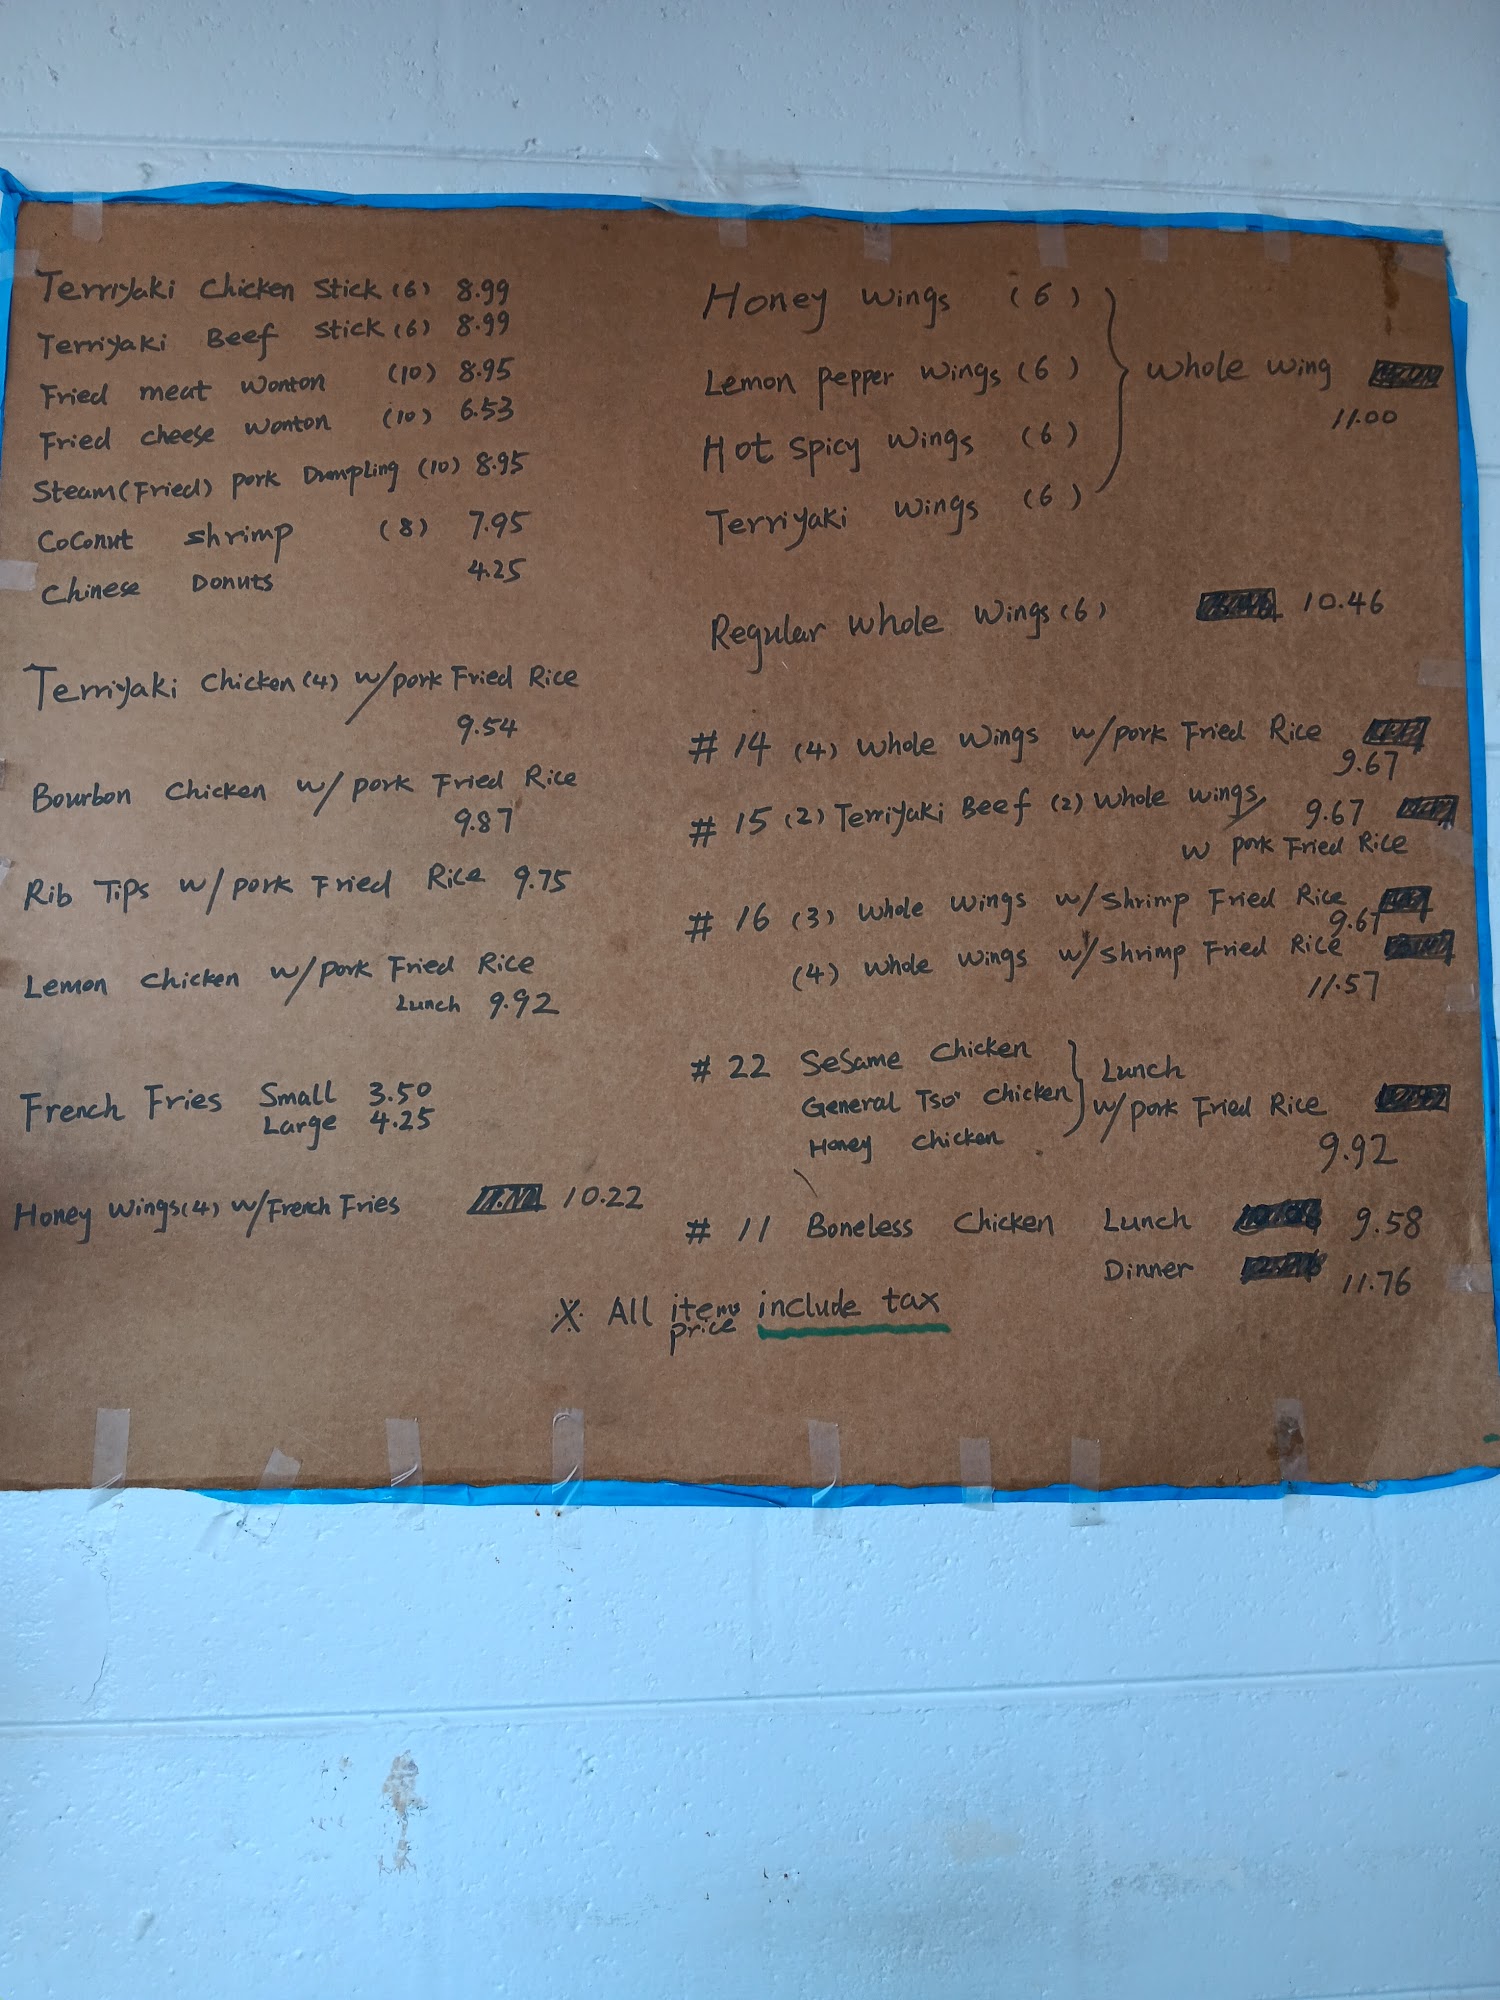 Terriyaki Chicken Stick (6) 8.99
Terriyaki Beef Stick (6) 8.99
Fried meat Wonton (10) 8.95
Fried cheese Wonton (10) 6.53
Steam(Fried) pork Dumpling (10) 8.95
Coconut Shrimp (8) 7.95
Chinese Donuts 4.25
Terriyaki Chicken (4) w/pork Fried Rice
9.54
Bourbon Chicken w/ pork Fried Rice
9.87
Rib Tips w/pork Fried Rice 9.75
Lemon Chicken w/pork Fried Rice
Lunch 9.92
French Fries Small 3.50
Large 4.25
Honey Wings(4) w/French Fries 10.22
Honey Wings (6)
Lemon pepper Wings (6) Whole Wing
11.00
Hot Spicy Wings (6)
Terriyaki Wings (6)
Regular Whole Wings (6) 10.46
# 14 (4) Whole Wings w/pork Fried Rice
9.67
# 15 (2) Terriyaki Beef (2) Whole Wings 9.67
w pork Fried Rice
# 16 (3) Whole Wings w/Shrimp Fried Rice
9.67
(4) Whole Wings w/Shrimp Fried Rice
11.57
# 22 Sesame Chicken Lunch
General Tso' Chicken w/pork Fried Rice
Honey Chicken 9.92
# 11 Boneless Chicken Lunch 9.58
Dinner 11.76
※ All items include tax
price